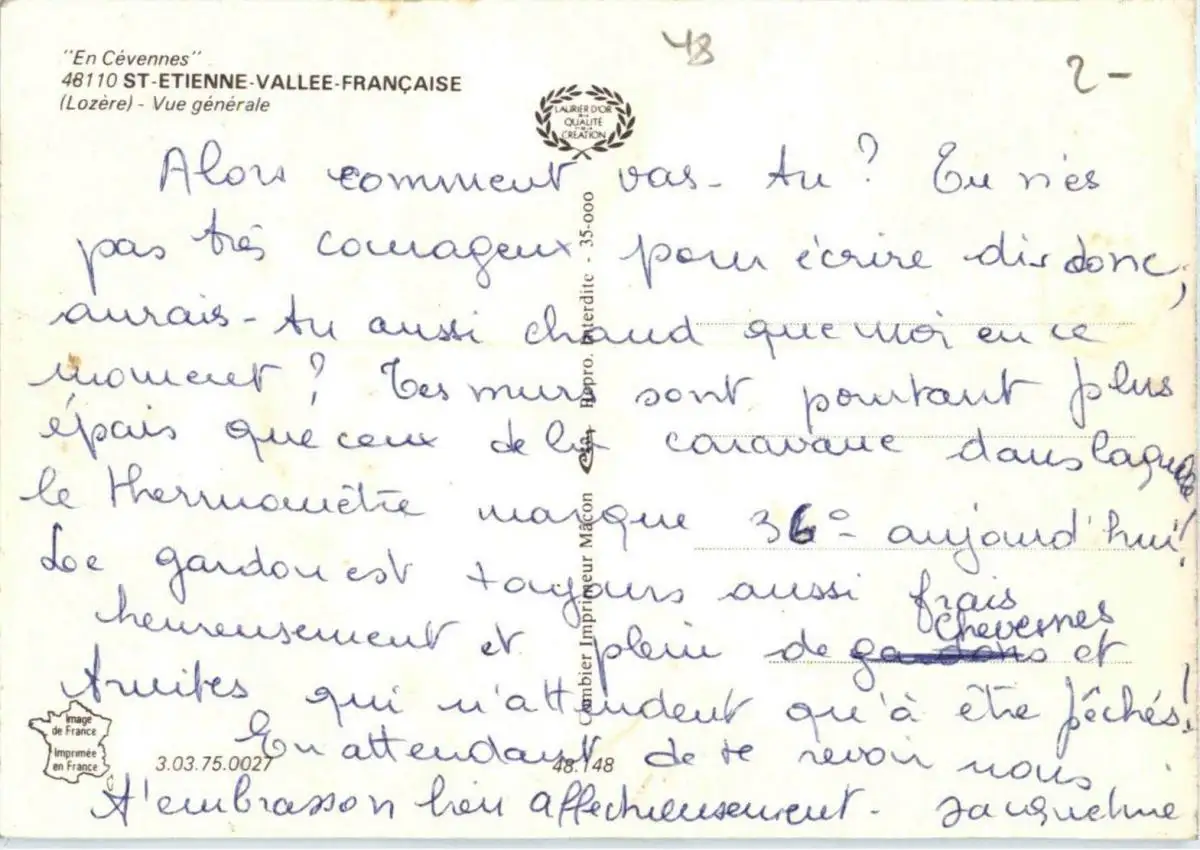 "En Cévennes"
48110 ST-ETIENNE-VALLEE-FRANÇAISE
(Lozère) - Vue générale
48
2-
LAURIER D'OR
DE LA
QUALITÉ
ET DE LA
CRÉATION
Alors comment vas-tu ? Tu n'es
pas très courageux pour écrire dis donc,
aurais-tu aussi chaud que moi en ce
moment ? Tes murs sont pourtant plus
épais que ceux de la caravane dans laquelle
le thermomètre marque 36° aujourd'hui!
Le gardon est toujours aussi frais
heureusement et plein de gardons chevernes et
truites qui n'attendent qu'à être pêchés!
En attendant de te revoir nous
t'embrasson bien affectueusement. Jacqueline
Combier Imprimeur Mâcon Cim Repro. Interdite - 35-000
Image
de France
Imprimée
en France
3.03.75.0027
48.148